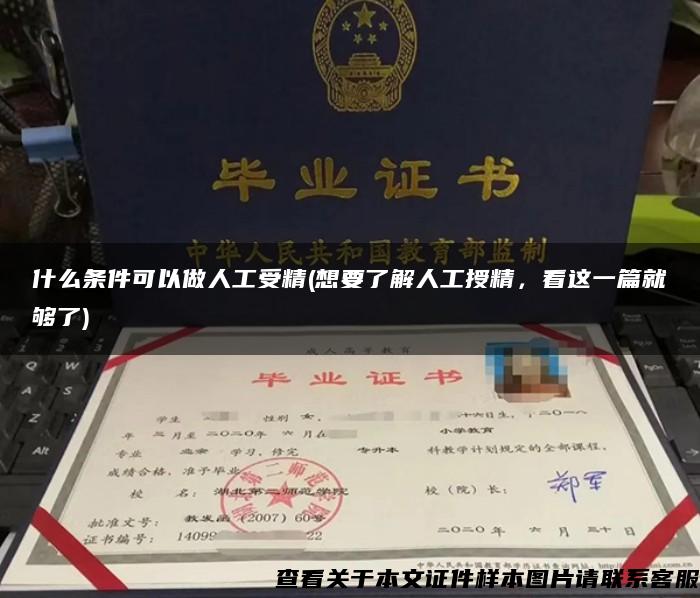 毕业证书
中华人民共和国教育部监制
什么条件可以做人工受精(想要了解人工授精，看这一篇就
够了)
成人高等教育
毕业证书
学生 性别 女， 十六日生，于二〇一八
年 三 月至 二〇二〇年 六 月在 小学教育
专业 学习，修完 专升本 科教学计划规定的全部课程，
成绩合格，准予毕业
校 名： 湖北第二师范学院 校（院）长： 郑军
批准文号： 教发函（2007）60号
证书编号： 14099 22 二〇二〇年 六 月 三十 日
查看关于本文证件样本图片请联系客服